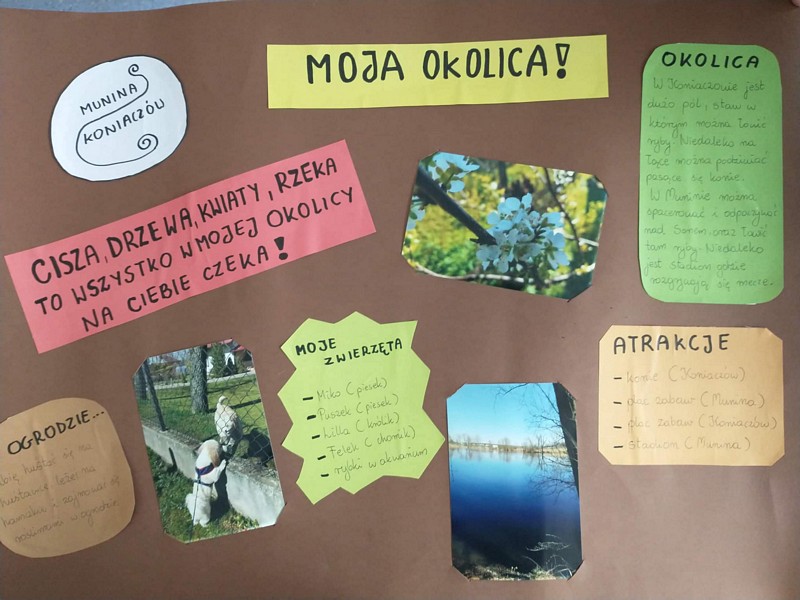 MOJA OKOLICA!
MUNINA
KONIACZÓW
CISZA, DRZEWA, KWIATY, RZEKA
TO WSZYSTKO W MOJEJ OKOLICY
NA CIEBIE CZEKA!
OKOLICA
W Koniaczowie jest
dużo pól, staw w
którym można łowić
ryby. Niedaleko na
łące można podziwiać
pasące się konie.
W Muninie można
spacerować i odpoczywać
nad Sanem oraz łowić
tam ryby. Niedaleko
jest stadion gdzie
rozgrywają się mecze.
MOJE
ZWIERZĘTA
- Miko (piesek)
- Puszek (piesek)
- Lilla (królik)
- Felek (chomik)
- rybki w akwarium
ATRAKCJE
- konie (Koniaczów)
- plac zabaw (Munina)
- plac zabaw (Koniaczów)
- stadion (Munina)
OGRODZIE...
huśtać się na
huśtawce leżeć na
hamaku i zajmować się
roślinami w ogrodzie.